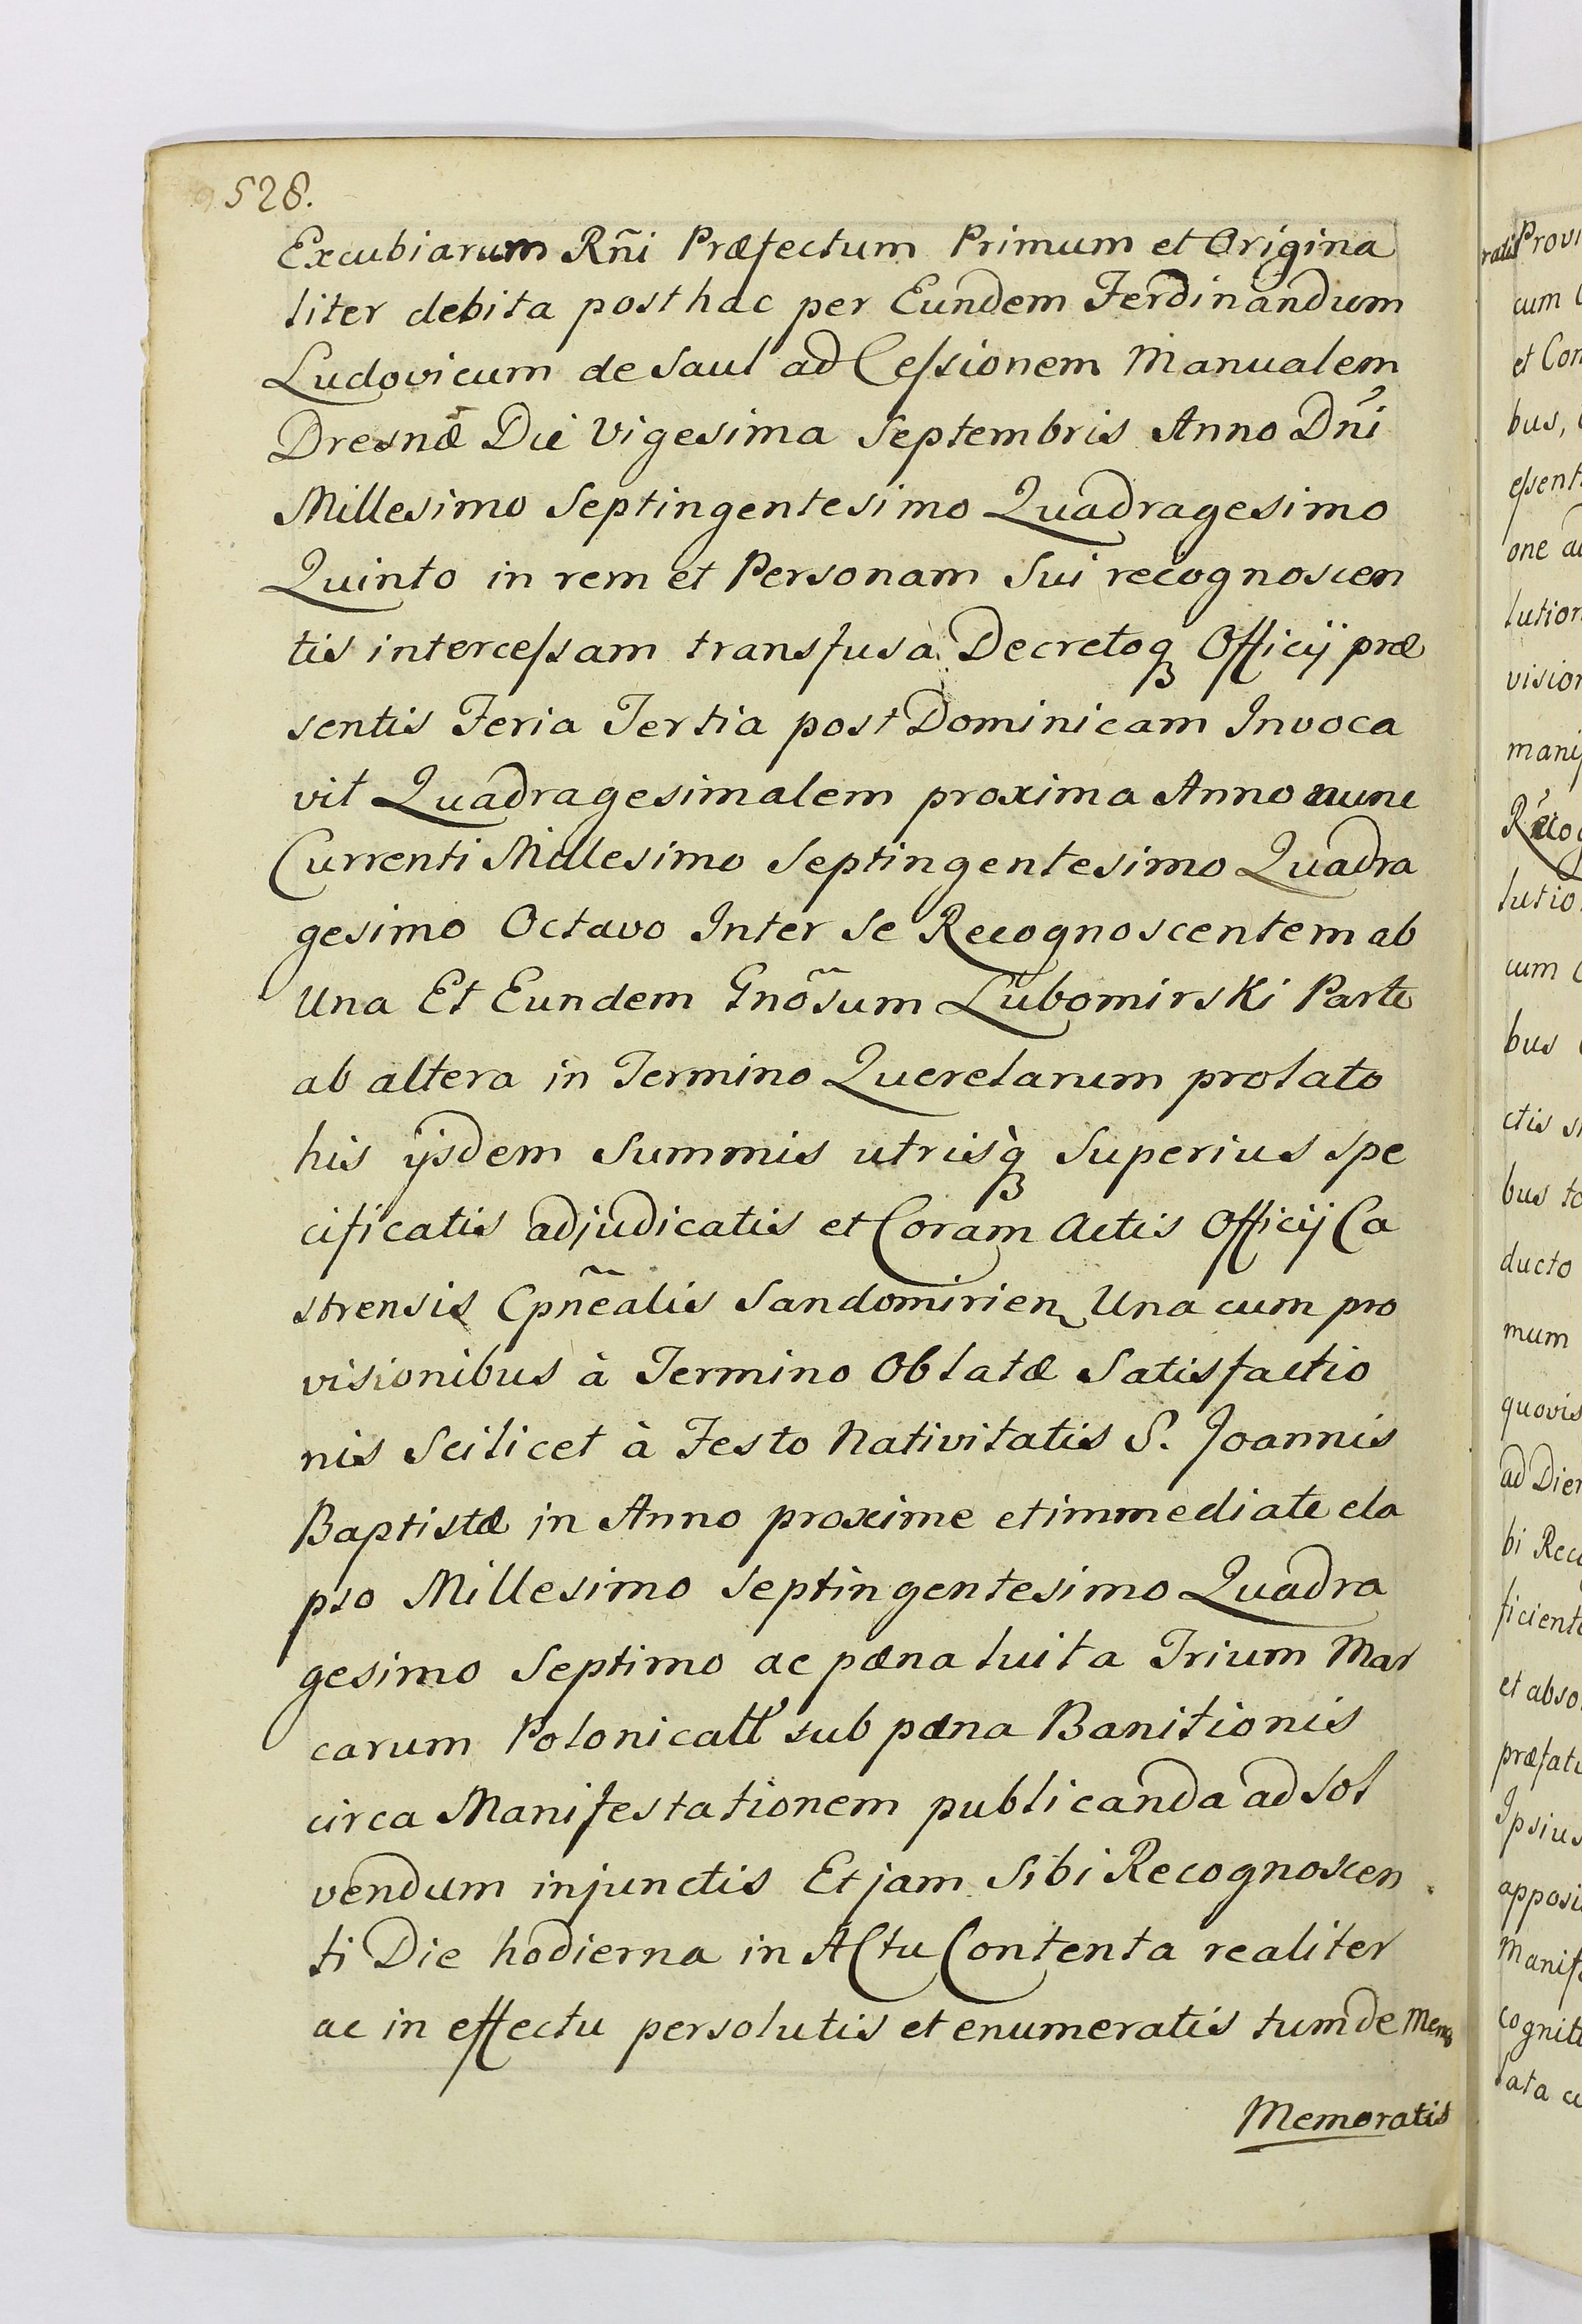 528.
Excubiarum Rñi Præfectum Primum et Origina
liter debita post hac per Eundem Ferdinandum
Ludovicum de Saul ad Cessionem Manualem
Dresnæ Die Vigesima Septembris Anno Dñi
Millesimo Septingentesimo Quadragesimo
Quinto in rem et Personam Sui recognoscen
tis intercessam transfusa Decretoq Officij præ
sentis Feria Tertia post Dominicam Invoca
vit Quadragesimalem proxima Anno nunc
Currenti Millesimo Septingentesimo Quadra
gesimo Octavo Inter Se Recognoscentem ab
Una Et Eundem Gnõsum Lubomirski Parte
ab altera in Termino Querelarum prolato
his ijsdem Summis utrisq Superius spe
cificatis adjudicatis et Coram Actis Officij Ca
strensis Cpñealis Sandomirien Una cum pro
visionibus à Termino Oblatæ Satisfactio
nis Scilicet à Festo Nativitatis S. Joannis
Baptistæ in Anno proxime et immediate ela
pso Millesimo Septingentesimo Quadra
gesimo Septimo ac pæna luita Trium Mar
carum Polonicall sub pæna Banitionis
circa Manifestationem publicanda ad sol
vendum injunctis Et jam Sibi Recognoscen
ti Die hodierna in Actu Contenta realiter
ac in effectu persolutis et enumeratis tum de Memo
Memoratis
ratis Provi
cum
et Con
bus,
essent
one
lution
vision
manif
Recog
lutio
cum
bus
ctis
bus to
ducto
mum
quovis
ad Diem
bi Reco
ficient
et abso
præfat
Ipsius
apposi
Manife
cognit
lata